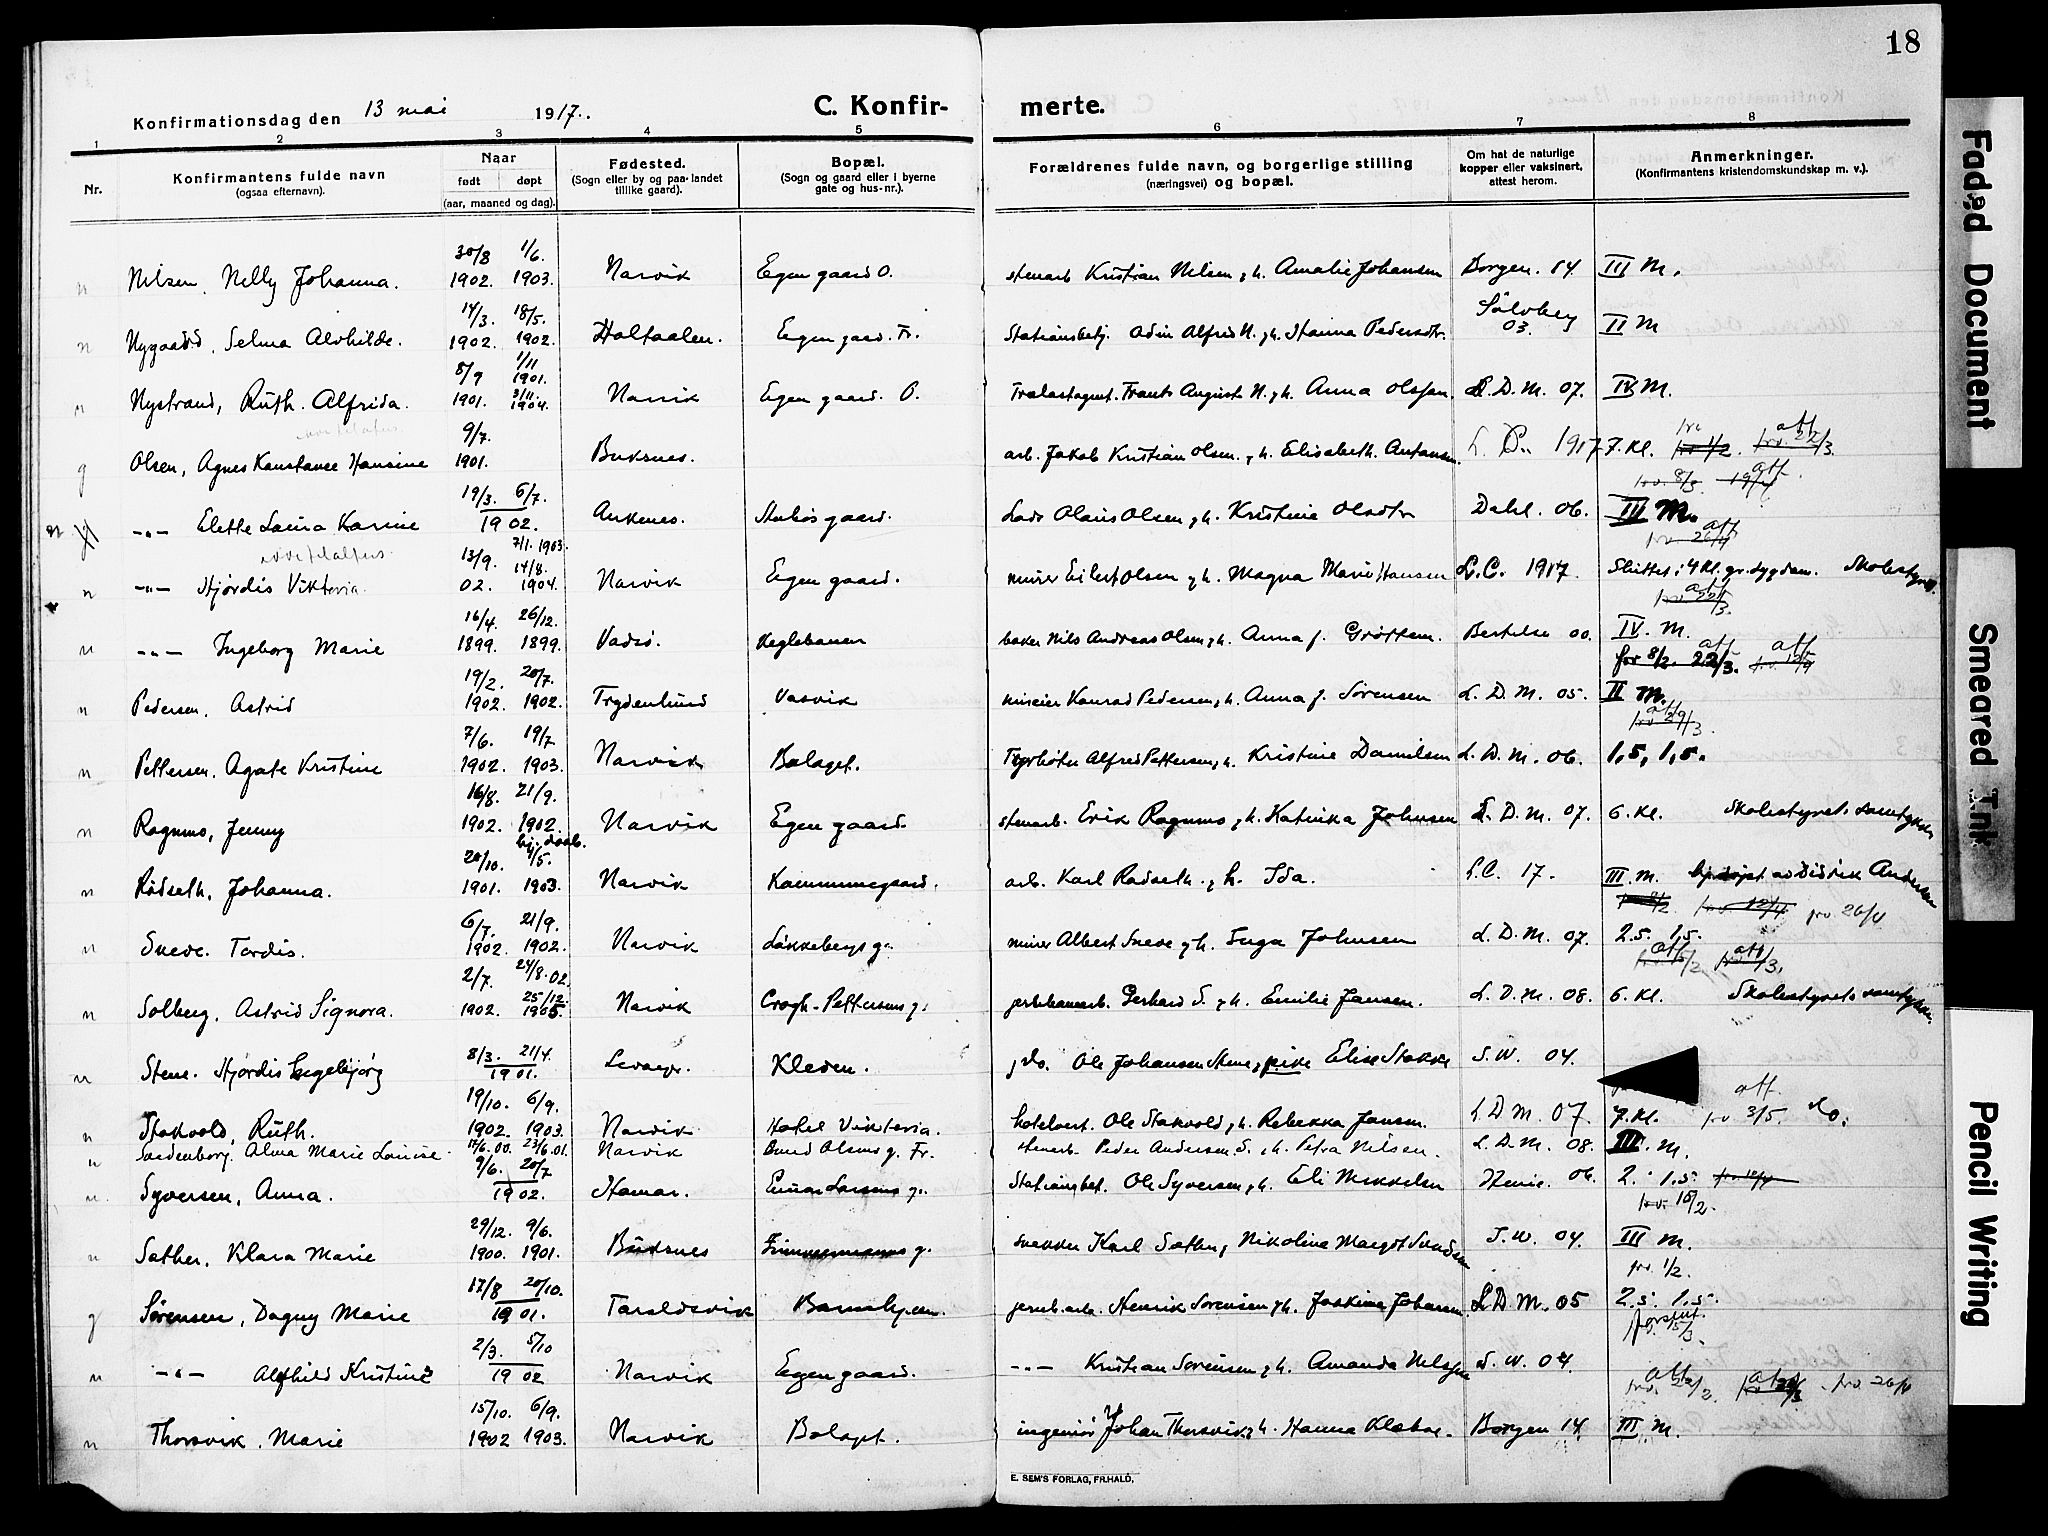 18
Konfirmationsdag den 13 mai 1917. C. Konfir- merte.
1 2 3 4 5 6 7 8
Nr. Konfirmantens fulde navn (ogsaa efternavn). Naar født døpt (aar, maaned og dag). Fødested. (Sogn eller by og paa landet tillike gaard). Bopæl. (Sogn og gaard eller i byerne gate og hus-nr.). Forældrenes fulde navn, og borgerlige stilling (næringsvei) og bopæl. Om hat de naturlige kopper eller vaksinert, attest herom. Anmerkninger. (Konfirmantens kristendomskundskap m. v.).
30/8 1/6.
n Nilsen, Nelly Johanna. 1902. 1903. Narvik Egen gaard O. stenarb Kristian Nilsen, h. Amalie Johansen Borgen. 14 III M.
14/3. 18/5. Sølvberg
n Nygaard, Selma Alvhilde. 1902. 1902. Holtaalen. Egen gaard. Fr. Stationsbetj. Odin Alfred N. h. Hanna Pedersdtr. 03. II M
8/9 1/11 1901.
n Nystrand, Ruth. Alfrida. 1901. 3/11. 1904. Narvik Egen gaard. O. Trælastagent. Frants August N. h. Anna Olsson. L. D. M. 07. IV M.
9/7. att
g Olsen, Agnes Konstanse Hansine 1901. Buksnes. arb. Jakob Kristian Olsen. h. Elisabeth. Antonsen. 1917 7. Kl. prv. 1/2. prv. 22/3.
prv. 8/3. att 19/4.
19/3. 6/7.
n -"- Elethe Laura Karine 1902. Ankenes. gaard. Olaus Olsen h. Kristine Olsdtr Dahl. 06. III M.
att prv 26/4
13/9. 7/1. 1903. 14/8.
n -"- Hjørdis Viktoria. 02. 1904. Narvik Egen gaard. murer Eilert Olsen h. Magna Marie Hansen L. C. 1917. Sluttet i 4 Kl. gr. sygdom. Skolestyret.
att prv 22/3.
16/4. 26/12.
n -"- Ingeborg Marie 1899. 1899. Vadsø. Keglebanen baker Nils Andreas Olsen, h. Anna f. Grøttem. Bertelse 00. IV. M.
prv 8/2. att 22/3. att prv. 12/4
19/2. 20/7.
n Pedersen. Astrid 1902. 1902. Trydenlund Vasvik Konrad Pedersen, h. Anna f. Sørensen L. D. M. 05. II M.
att prv 29/3.
7/6. 19/7
n Pettersen. Agate Kristine 1902. 1903. Narvik Bolaget. Fyrbøter Alfred Pettersen, h. Kristine Danielsen L. D. M. 06. 1,5, 1,5.
16/8. 21/9.
n Rognmo, Jenny 1902. 1902. Narvik Egen gaard. stenarb. Erik Rognmo, h. Katinka Johnsen L. D. M. 07. 6. Kl. Skolestyrets samtykke
20/10. hj. døpt. /5.
n Rødseth, Johanna. 1901. 1903. Narvik Kommunegaard. arb. Karl Rødseth. h. Ida. L.C. 17. III. M. hj. døpt av Didrik Andersen
prv. 8/2 prv. 12/4 prv. 26/4
6/7. 21/9.
n Sneve. Tordis. 1902. 1902. Narvik Løkkebergs g. murer Albert Sneve h. Inga Johnsen L. D. M. 07. 2.5. 1,5.
att prv. /2 att prv. /3.
2/7. 24/8. 02. 25/12.
n Solberg, Astrid Signora. 1902. 1905. Narvik Crogh-Pettersens g. jernbanearb. Gerhard S. h. Emilie Jansen. L. D. M. 08. 6. Kl. Skolestyrets samtykke.
8/3. 21/4.
n Stene. Hjørdis Ingebjørg 1901. Levanger. Kleven. do. Ole Johansen Stene, pike Elise Stokke S. W. 04.
19/10. 6/9. att.
n Stokvold, Ruth. 1902. 1903. Narvik Hotel Viktoria. hotelvert. Ole Stokvold, h. Rebekka Jansen. L.D.M. 07 7. Kl. prv. 3/5. do.
n Søidenborg. Alma Marie Louise. 17/6. 00. 23/6. 01. Narvik Olsens g. Fr. stenarb. Peder Andersen S. h. Petra Nilsen. L. D. M. 08. III. M.
9/6. 20/7
n. Syversen, Anna. 1902. Hamar. Einar Larsens g. Stationsbet. Ole Syversen, h. Eli Mikkelsen 06. 2. 1.5 prv 12/4
prv. 15/2.
29/12. 9/6.
n Sæther, Klara Marie 1900. 1901. Buksnes Zimmermanns g. snekker Karl Sæther, Nikoline Margot S. W. 04. III M.
prv. 1/2.
17/8 20/10.
g Sørensen, Dagny Marie 1901. Taraldsvik jernb. arb. Henrik Sørensen, h. Joakime Johansen. L.D.M. 05 2.5. 1.5.
15/3.
2/3. 5/10
n -"- Alfhild Kristine 1902 Narvik Egen gaard. -"- Kristian Sørensen, h. Amanda Nilsen S. W. 04.
att prv. 22/2 att prv. 26/4
15/10. 6/9.
n Thorsvik, Marie 1902 1903. Narvik Bolaget. ingeniør Johan Thorsvik, h. Hanna Klæboe. Borgen 14. III M.
E. SEM'S FORLAG, FR.HALD,
Faded Document
Smeared Ink
Pencil Writing